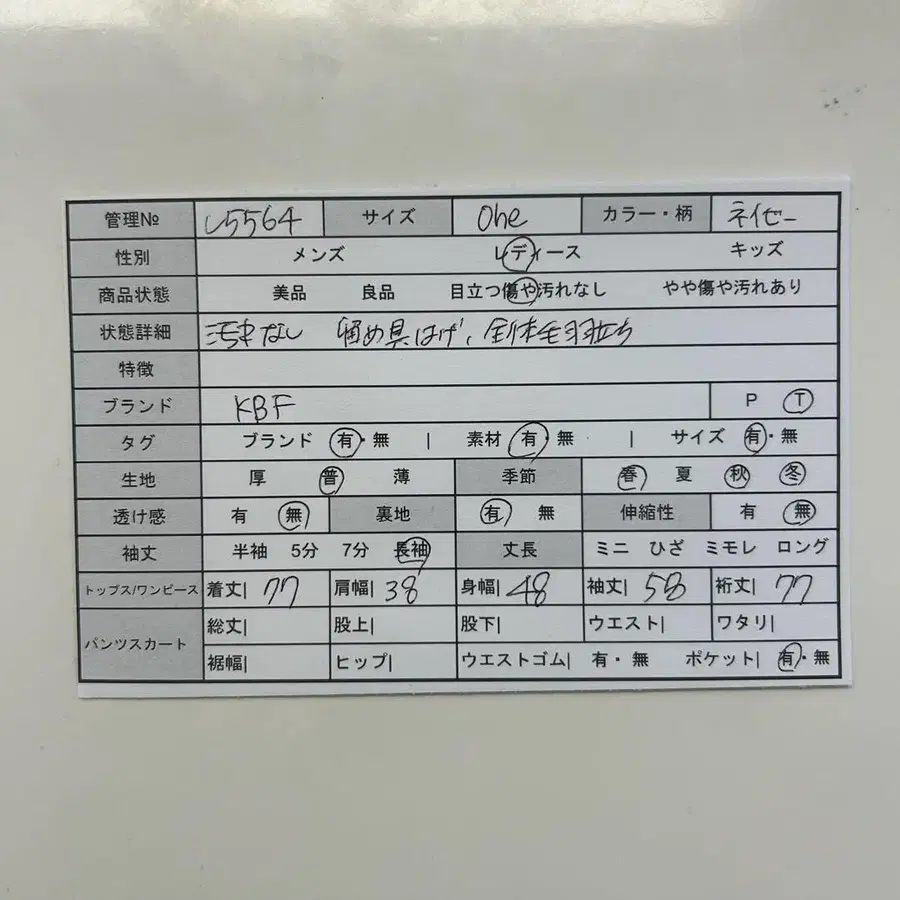 管理№ し5564 サイズ One カラー・柄 ネイビー
性別 メンズ レディース キッズ
商品状態 美品 良品 目立つ傷や汚れなし やや傷や汚れあり
状態詳細 汚れなし 留め具はげ、全体毛羽立ち
特徴
ブランド KBF P T
タグ ブランド 有・無 | 素材 有・無 | サイズ 有・無
生地 厚 普 薄 季節 春 夏 秋 冬
透け感 有 無 裏地 有 無 伸縮性 有 無
袖丈 半袖 5分 7分 長袖 丈長 ミニ ひざ ミモレ ロング
トップス/ワンピース 着丈| 77 肩幅| 38 身幅| 48 袖丈| 58 裄丈| 77
パンツスカート 総丈| 股上| 股下| ウエスト| ワタリ|
裾幅| ヒップ| ウエストゴム| 有・無 ポケット| 有・無